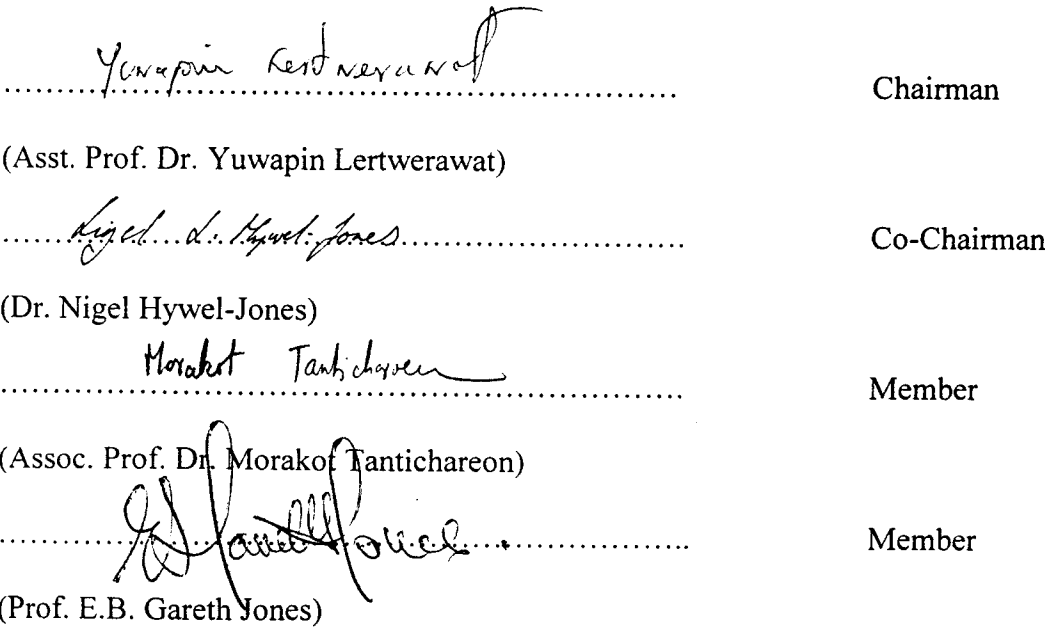 Yuwapin Lertwerawat
Chairman
(Asst. Prof. Dr. Yuwapin Lertwerawat)
Nigel L. Hywel-Jones
Co-Chairman
(Dr. Nigel Hywel-Jones)
Morakot Tantichareon
Member
(Assoc. Prof. Dr. Morakot Tantichareon)
Gareth Jones
Member
(Prof. E.B. Gareth Jones)